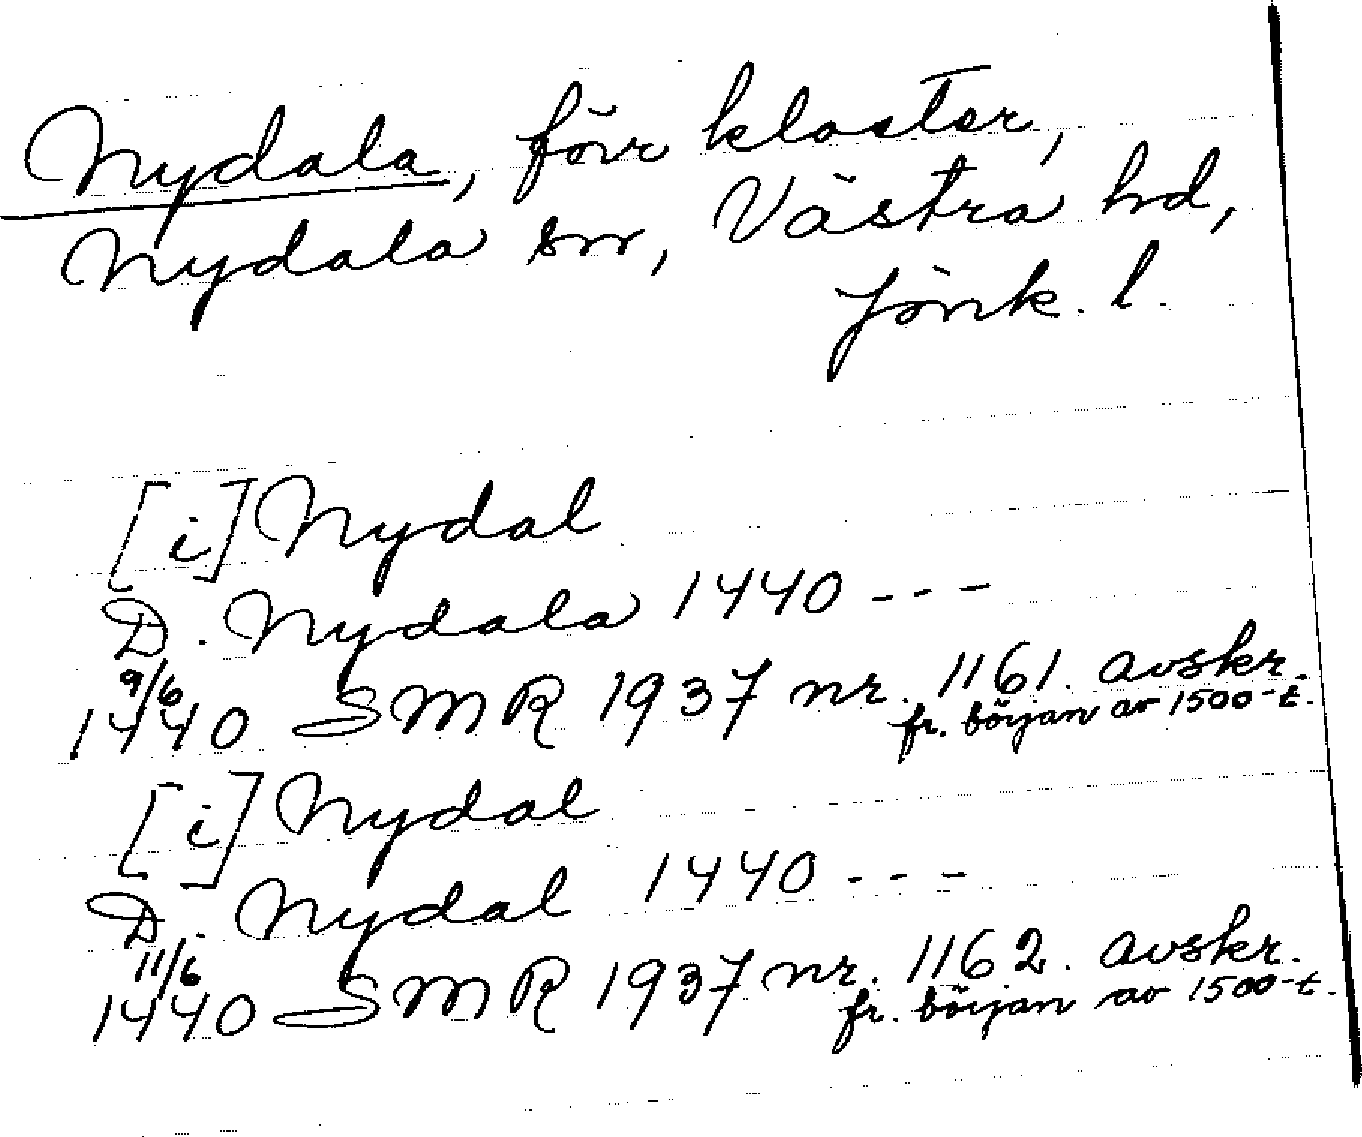 Nydala, förr kloster,
Nydala sn, Västra hd,
Jönk. l.
[i] Nydal
D. Nydala 1440 - - -
9/6
1440 SMR 1937 nr. 1161. avskr.
fr. början av 1500-t.
[i] Nydal
D. Nydal 1440 - - -
11/6
1440 SMR 1937 nr. 1162. avskr.
fr. början av 1500-t.